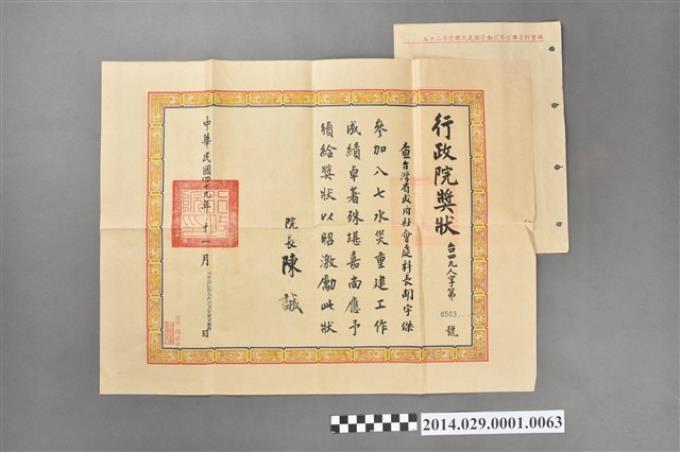 行政院獎狀
台四九人字第
6503...
號
查台灣省政府社會處科長胡宇傑
參加八七水災重建工作
成績卓著殊堪嘉尚應予
頒給獎狀以昭激勵此狀
院長 陳誠
中華民國四十九年十一月 日
2014.029.0001.0063